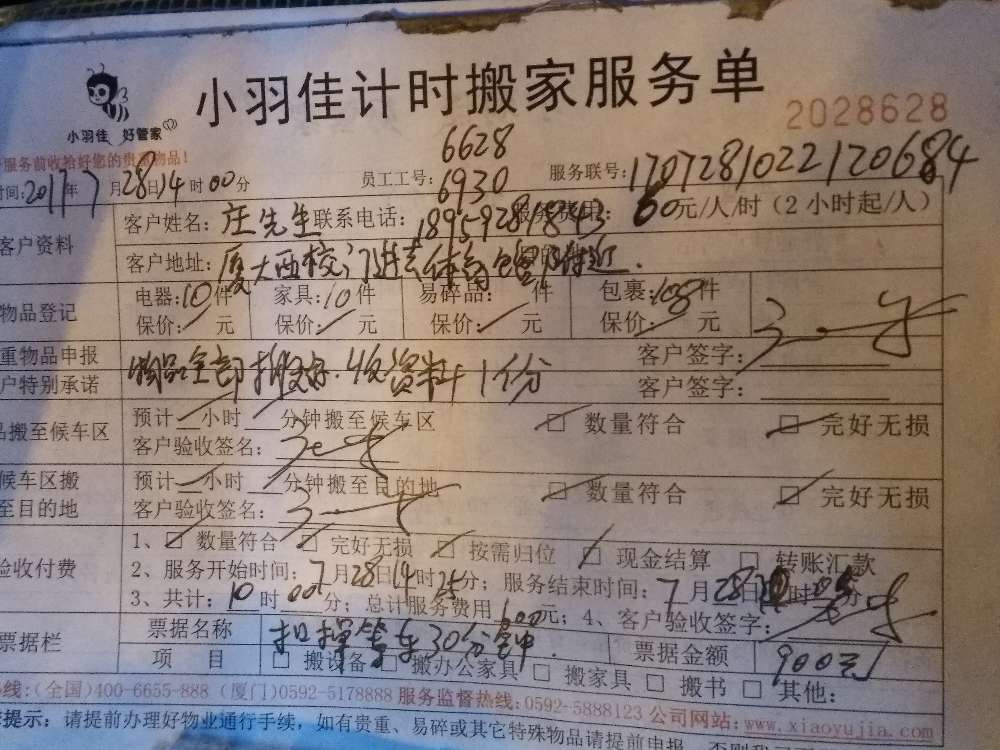 小羽佳计时搬家服务单
2028628
小羽佳 好管家
服务前收拾好您的贵重物品!
6628
时间:2017年7月28日14时00分 员工工号:6930 服务联号:1707281022120684
客户资料
客户姓名:庄先生 联系电话:18959281843 服务费用:60元/人/时(2小时起/人)
客户地址:厦大西校门进去体育馆附近.
物品登记
电器:10件 家具:10件 易碎品: 件 包裹:108件
保价: 元 保价: 元 保价: 元 保价: 元
重物品申报 客户签字:
户特别承诺 物品全部搬好.收资料1份 客户签字:
品搬至候车区
预计 小时 分钟搬至候车区 数量符合 完好无损
客户验收签名:
候车区搬至目的地
预计 小时 分钟搬至目的地 数量符合 完好无损
客户验收签名:
验收付费
1、数量符合 完好无损 按需归位 现金结算 转账汇款
2、服务开始时间:7月28日14时25分;服务结束时间:7月28日 时05分;
3、共计:10时00分;总计服务费用 600元;4、客户验收签字:
票据栏
票据名称 扣掉等车30分钟. 票据金额 900元
项 目 搬设备 搬办公家具 搬家具 搬书 其他:
热线:(全国)400-6655-888 (厦门)0592-5178888 服务监督热线:0592-5888123 公司网站:www.xiaoyujia.com
提示:请提前办理好物业通行手续,如有贵重、易碎或其它特殊物品请提前申报